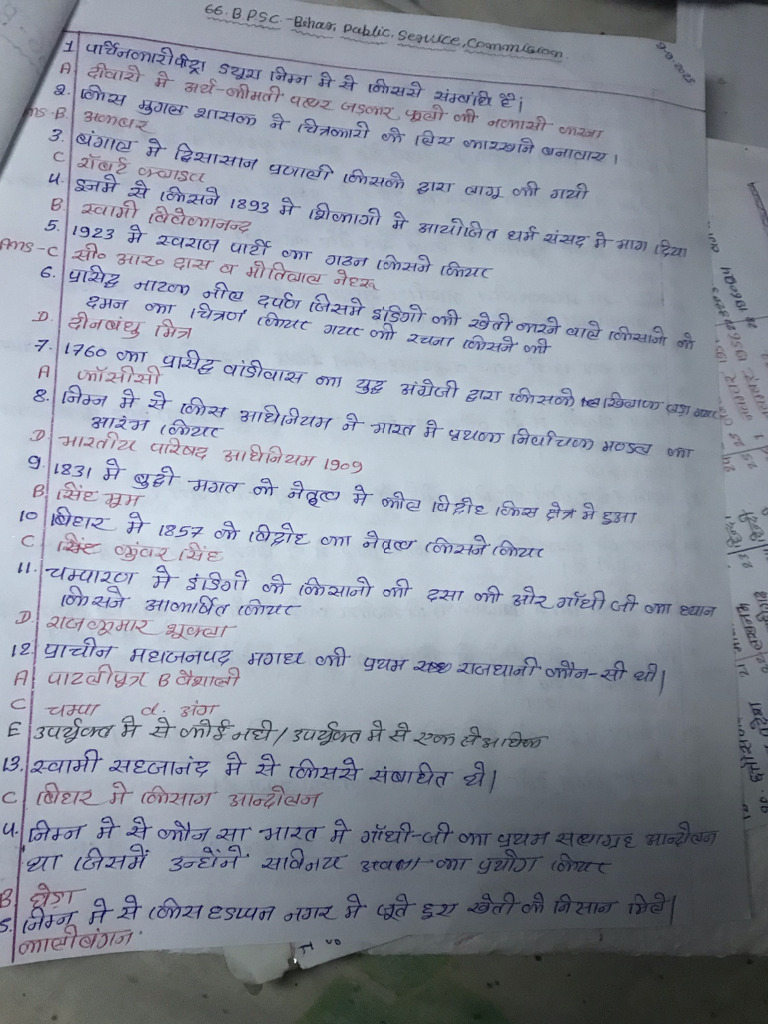 66. B.PSC. -Bihar, Public, Service, Commission
1 पर्चिनकारीपीट्रा ड्यूरा निम्न मे से किससे संम्बंधि है।
A दीवारो मे अर्ध-कीमती पत्थर जड़कर फूलो की नकासी करना
2. किस मुगल शासक ने चित्रकारो के लिए कारखाने बनवाय।
Ans-B. अकबर
3. बंगाल मे द्विसासान प्रणाली किसके द्वारा लागू की गयी
C रॉबर्ट क्लाइव
4. इनमे से किसने 1893 मे शिकागो मे आयोजित धर्म संसद मे भाग दिया
B. स्वामी विवेकानन्द
5. 1923 मे स्वराज पार्टी का गठन किसने किया
Ans-C सी० आर० दास व मोतिलाल नेहरू
6. प्रासिद्ध नाटक नील दर्पण जिसमे इंडिगो की खेती करने वाले किसानो के
दमन का चित्रण किया गया की रचना किसने की
D. दीनबंधु मित्र
7. 1760 का प्रासिद्ध वांडीवास का युद्ध अंग्रेजी द्वारा किसके खिलाफ लड़ा गया
A फ्रॉंसीसी
8. निम्न मे से किस अधिनियम ने भारत मे प्रथक निर्वाचक मण्डल का
आरंभ किया
D. भारतीय परिषद अधिनियम 1909
9. 1831 मे बुद्धो भगत के नेतृत्व मे कोल विद्रोह किस क्षेत्र मे हुआ
B. सिंह भूम
10 बिहार मे 1857 के विद्रोह का नेतृत्व किसने किया
C कुंवर सिंह
11. चम्पारण मे इंडिगो के किसानो की दसा की ओर गाँधी जी का ध्यान
किसने आकर्षित किया
D. राजकुमार शुक्ला
12. प्राचीन महाजनपद मगध की प्रथम राजधानी कौन-सी थी।
A पाटलीपुत्र B वैशाली
C चम्पा d. अंग
E उपर्युक्त मे से कोई नही / उपर्युक्त मे से एक से अधिक
13. स्वामी सहजानंद मे से किससे संबाधित थे।
C बिहार मे किसान आन्दोलन
4. निम्न मे से कौन सा भारत मे गाँधी-जी का प्रथम सत्याग्रह आन्दोलन
था जिसमें उन्होंने सविनय अवज्ञा का प्रयोग किया
B. खेड़ा
5. निम्न मे से किस हडप्पन नगर मे जूते हुए खेती के निसान मिले।
कालीबंगन